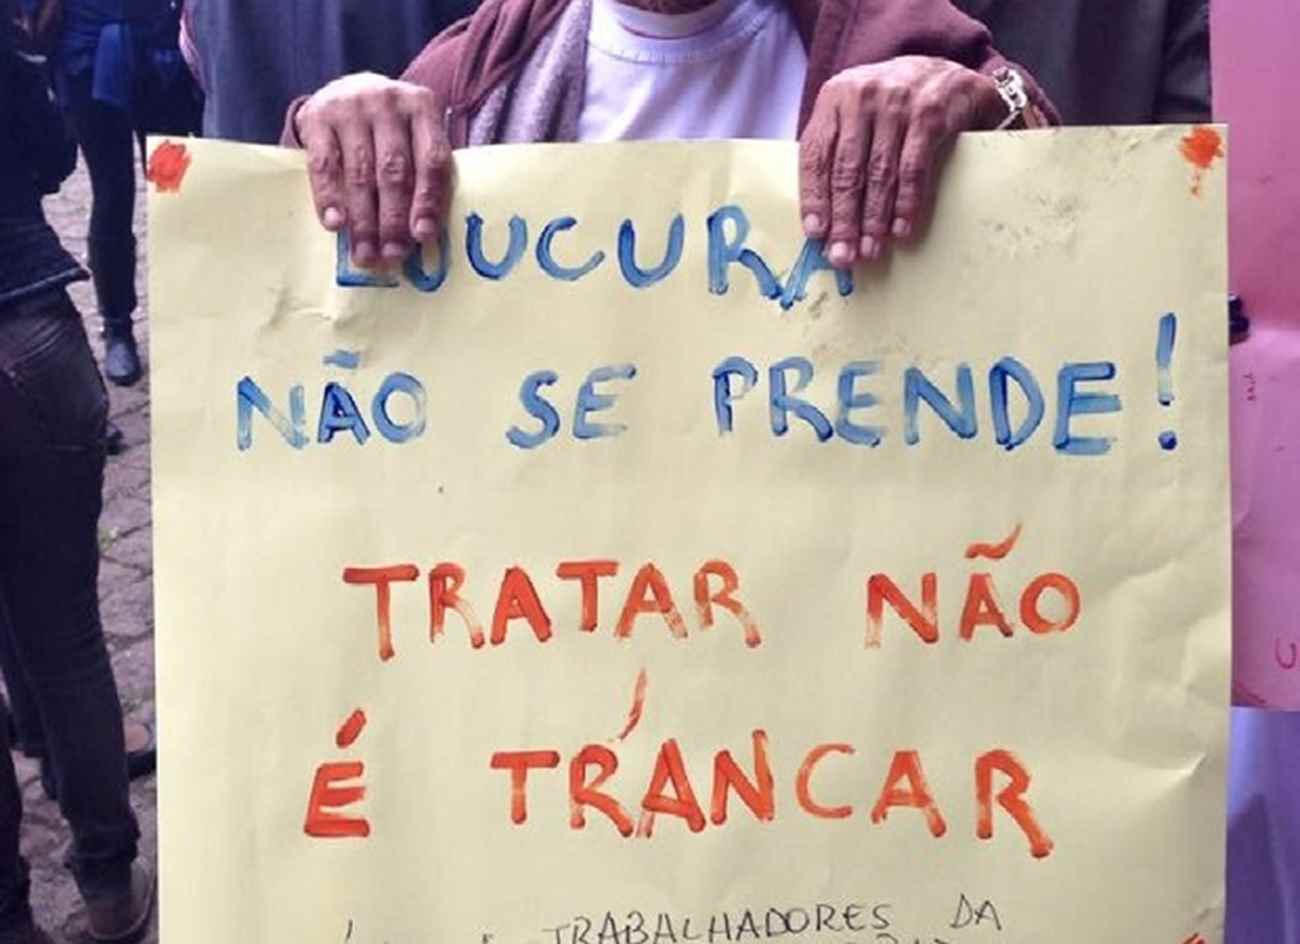 LOUCURA
NÃO SE PRENDE!
TRATAR NÃO
É TRANCAR
TRABALHADORES DA